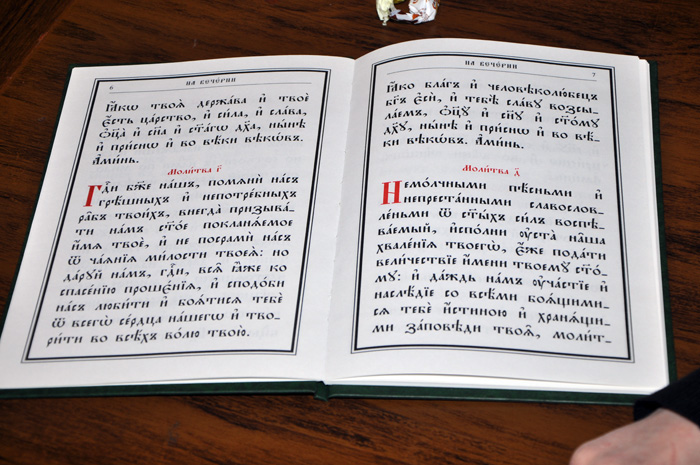 6
НА ВЕЧЕ́РНИ
Ꙗ҆́кѡ твоѧ̀ держа́ва и҆ твоѐ
є҆́сть ца́рство, и҆ си́ла, и҆ сла́ва,
ѻ҆ц҃а̀ и҆ сн҃а и҆ ст҃а́гѡ дх҃а, ны́нѣ
и҆ при́снѡ и҆ во вѣ́ки вѣкѡ́въ.
А҆ми́нь.
Моли́тва г҃
Гдⷭ҇и бж҃е на́шъ, помѧнѝ на́съ
грѣ́шныхъ и҆ непотре́бныхъ
ра̑бъ твои́хъ, внегда̀ призыва́-
ти на́мъ ст҃о́е покланѧ́емое
и҆́мѧ твоѐ, и҆ не посрамѝ на́съ
ѿ ча́ѧнїѧ ми́лости твоеѧ̀: но
да́руй на́мъ, гдⷭ҇и, всѧ̑ ꙗ҆̀же ко
спⷭ҇нїю прошє́нїѧ, и҆ сподо́би
на́съ люби́ти и҆ боѧ́тисѧ тебє̀
ѿ всегѡ̀ се́рдца на́шегѡ и҆ тво-
ри́ти во всѣ́хъ во́лю твою̀.
НА ВЕЧЕ́РНИ
7
Ꙗ҆́кѡ бл҃гъ и҆ человѣколю́бецъ
бг҃ъ є҆сѝ, и҆ тебѣ̀ сла́ву возсы-
ла́емъ, ѻ҆ц҃ꙋ̀ и҆ сн҃ꙋ и҆ ст҃о́мꙋ
дх҃ꙋ, ны́нѣ и҆ при́снѡ и҆ во вѣ́-
ки вѣкѡ́въ. А҆ми́нь.
Моли́тва д҃
Немо́лчными пѣ́сньми и҆
непреста́нными славосло́в-
леньми ѿ ст҃ы́хъ си́лъ воспѣ-
ва́емый, и҆спо́лни ᲂу҆ста̀ на̑ша
хвале́нїѧ твоегѡ̀, є҆́же пода́ти
вели́чествїе и҆́мени твоемꙋ̀ ст҃о́-
мꙋ: и҆ да́ждь на́мъ ᲂу҆ча́стїе и҆
наслѣ́дїе со всѣ́ми боѧ́щими-
сѧ тебє̀ и҆́стиною и҆ хранѧ́щи-
ми за́повѣди твоѧ̑, моли́т-